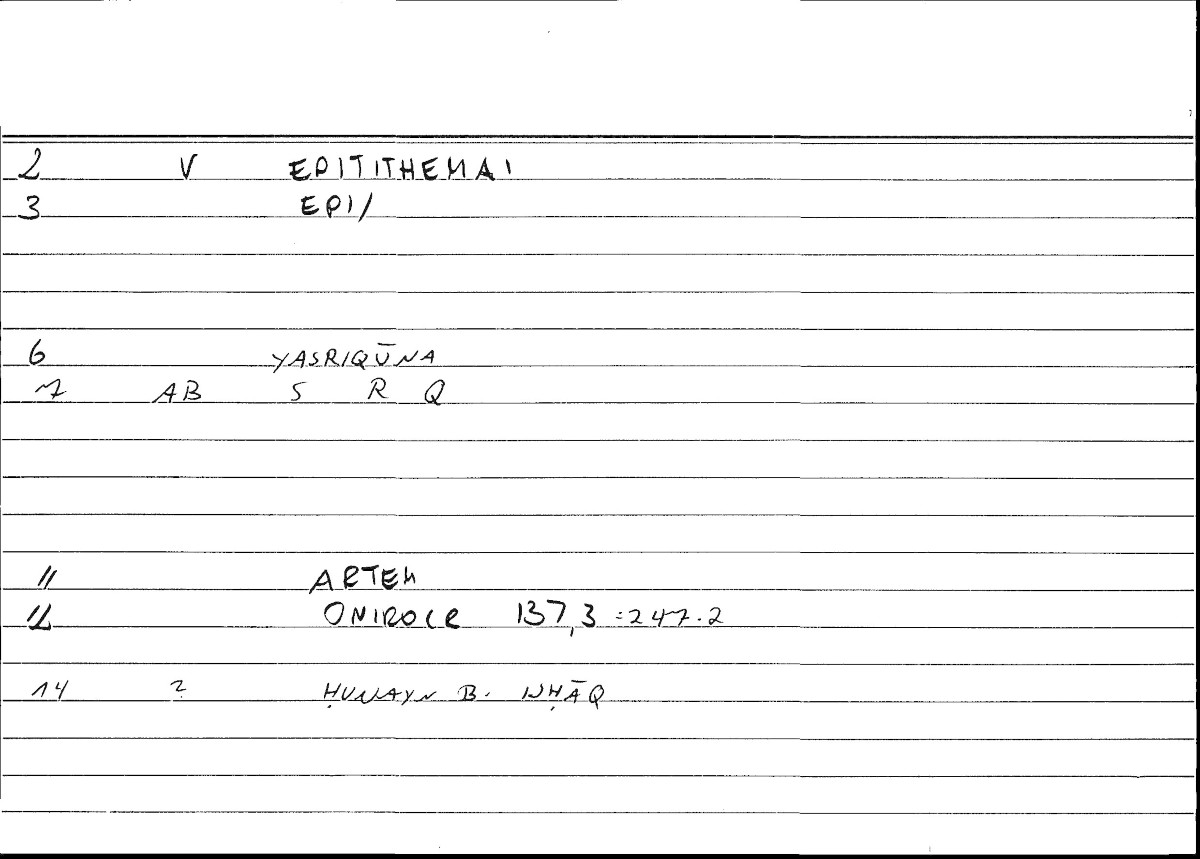 2 V EPITITHEMAI
3 EPI/
6 YASRIQŪNA
7 AB S R Q
11 ARTEM
12 ONIROCR 137,3 =247.2
14 ? ḤUNAYN B. ISḤĀQ